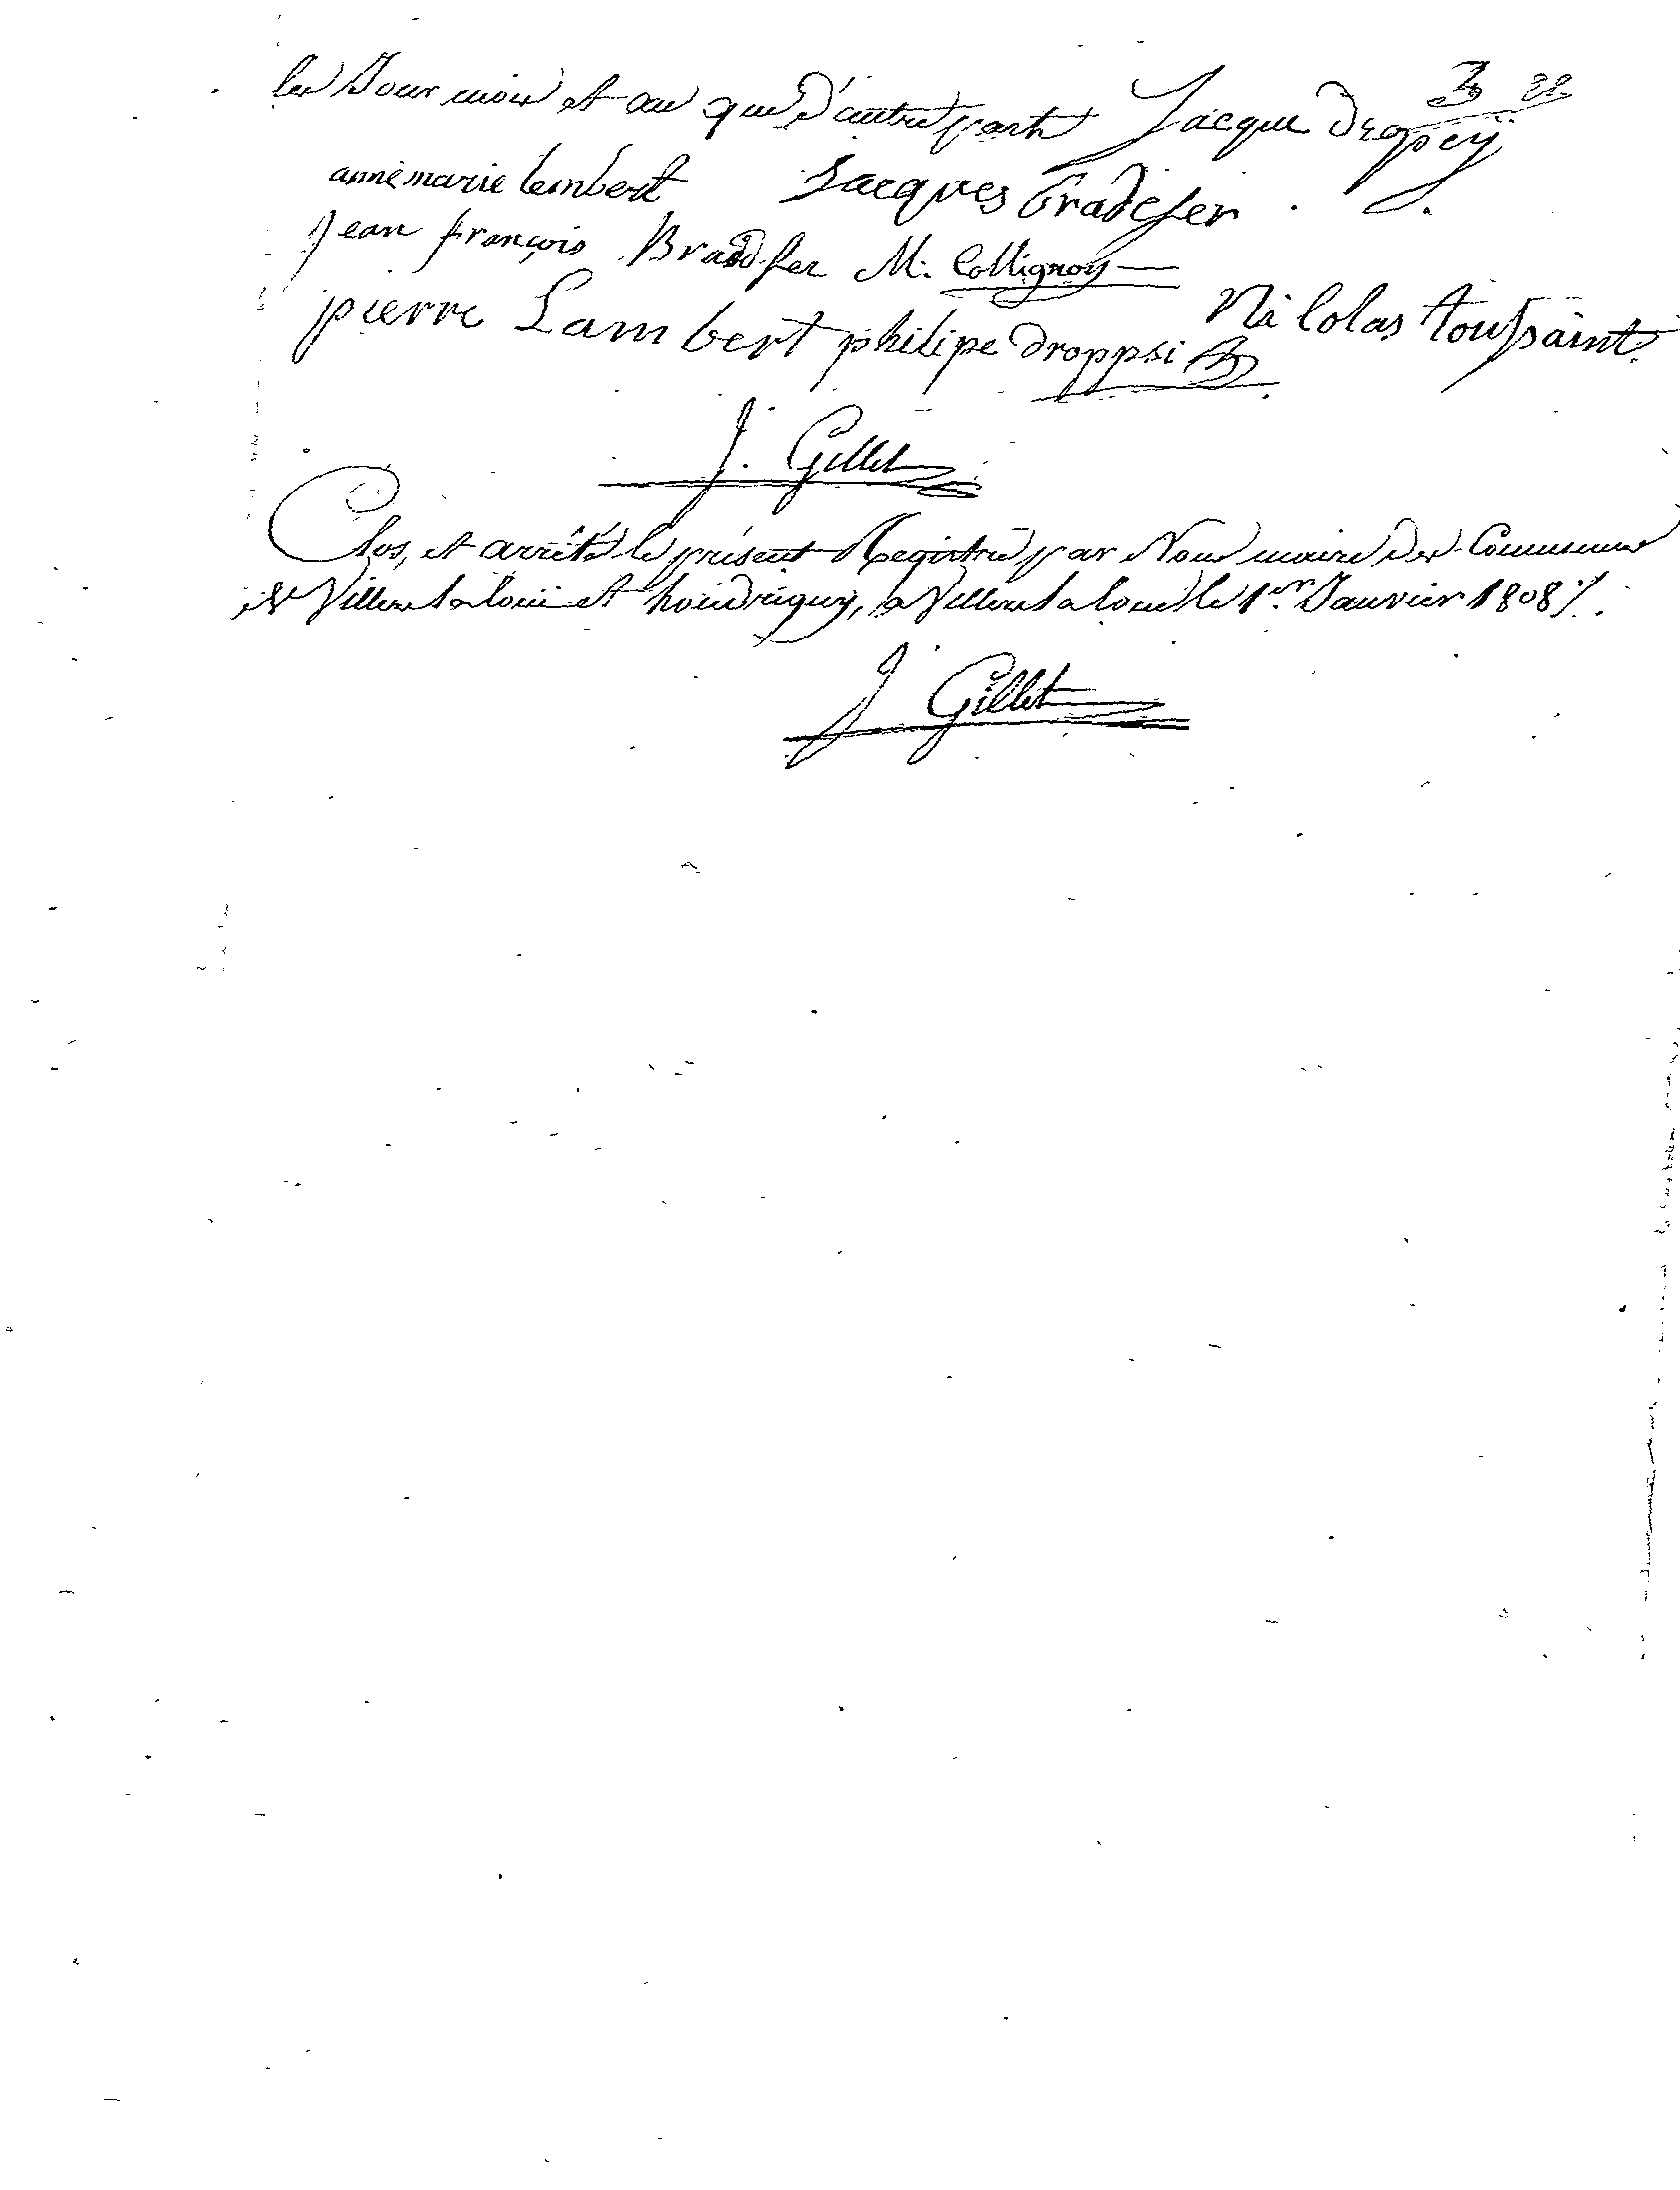 les Jour mois et an que d'autre part Jacque dropsÿ
anne marie lembert Jacques Bradefer
Jean françois Bradfer M. Collignon
pierre Lambert philipe droppsi Nicolas toussaint
J. Gillet
Clos, et arrêté le présent Registre par Nous maire des Communes
de Villers la loue et houdrigny, a Villers la loue le 1er Janvier 1808 ./.
J Gillet